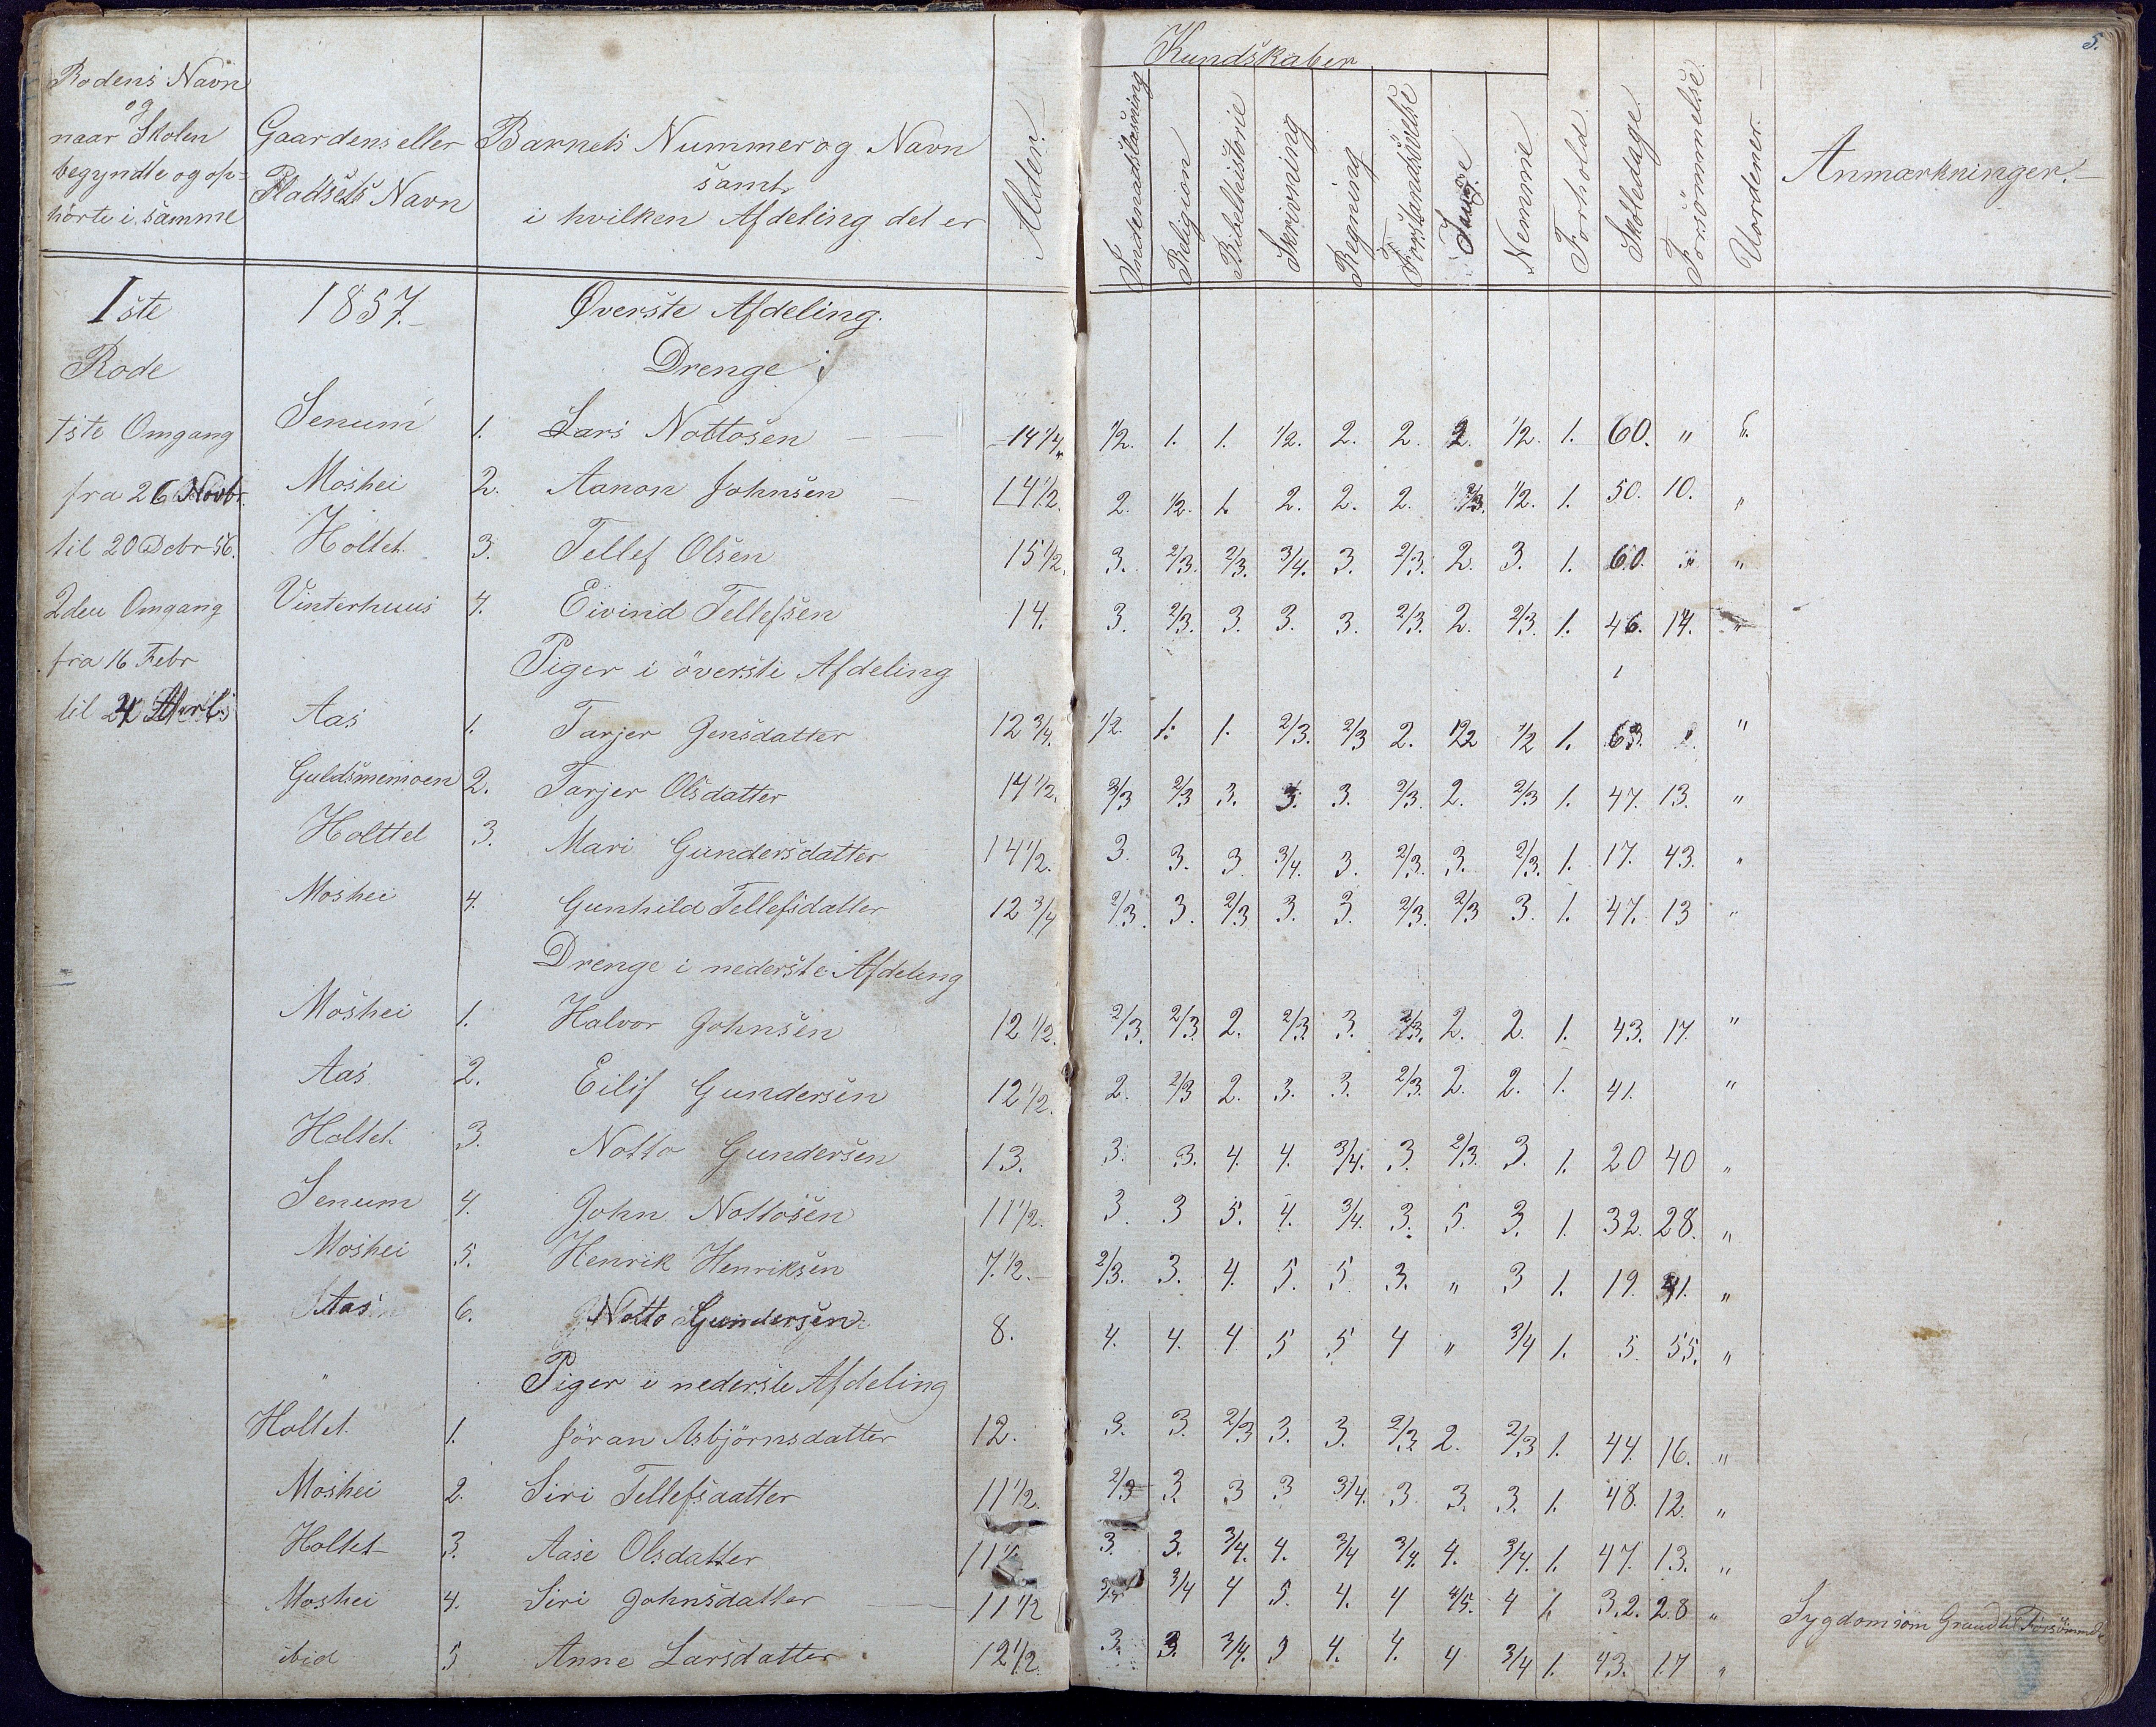 5.
Rodens Navn
og
naar Skolen
begyndte og op-
hörte i samme
Gaardens eller
Pladsets Navn
Barnets Nummer og Navn
samt
i hvilken Afdeling det er
Alder.
Kundskaber
Indenadslæsning
Religion
Bibelhistorie
Skrivning
Regning
Forstandsövelse
Sang.
Nemme
Forhold.
Skoledage.
Forsömmelse.
Uordener.
Anmærkninger.
Iste 1857. Øverste Afdeling.
Rode Drenge
1ste Omgang Senum 1. Lars Nottosen 14 1/4. 1/2. 1. 1. 1/2. 2. 2. 2. 1/2. 1. 60. "
fra 26 Novbr. Moshei 2. Aanon Johnsen 14 1/2. 2. 1/2. 1. 2. 2. 2. 2/3. 1/2. 1. 50. 10. "
til 20 Debr 56. Holtet. 3. Tellef Olsen 15 1/2. 3. 2/3. 2/3. 3/4. 3. 2/3. 2. 3. 1. 60. " "
2den Omgang Vinterhuus 4. Eivind Tellefsen 14. 3. 2/3. 3. 3. 3. 2/3. 2. 2/3. 1. 46. 14. "
fra 16 Febr Piger i överste Afdeling
til
Aas 1. Tarjer Jensdatter 12 3/4. 1/2. 1. 1. 2/3. 2/3 2. 1/2 1. 63. "
Guldsmemoen 2. Tarjer Olsdatter 14 1/2. 2/3 2/3 3. 3. 3. 2/3. 2. 2/3 1. 47. 13. "
Holttet 3. Mari Gundersdatter 14 1/2. 3. 3. 3 3/4. 3. 2/3. 3. 2/3. 1. 17. 43. "
Moshei 4. Gunhild Tellefsdatter 12 3/4 2/3. 3. 2/3 3. 3. 2/3. 2/3 3. 1. 47. 13 "
Drenge i nederste Afdeling
Moshei 1. Halvor Johnsen 12 1/2. 2/3. 2/3 2. 2/3 3. 2/3. 2. 2. 1. 43. 17. "
Aas 2. Eilif Gundersen 12 1/2. 2. 2/3 2. 3. 3. 2/3. 2. 2. 1. 41. "
Holtet. 3. Notto Gundersen 13. 3. 3. 4. 4. 3/4. 3. 2/3. 3. 1. 20 40 "
Senum 4. John Nottosen 11 1/2. 3. 3 5. 4. 3/4. 3. 5. 3. 1. 32. 28. "
Moshei 5. Henrik Henriksen 7. 1/2. 2/3. 3. 4. 5. 5. 3. " 3 1. 19. 41. "
Aas 6. Notto Gundersen 8. 4. 4. 4 5 5 4 " 3/4 1. 5. 55. "
" Piger i nederste Afdeling
Holtet. 1. Jöran Asbjörnsdatter 12. 3. 3. 2/3 3. 3. 2/3 2. 2/3 1. 44. 16. "
Moshei 2. Siri Tellefsdatter 11 1/2. 2/3 3. 3 3 3/4. 3. 3. 3. 1. 48. 12. "
Holtet 3. Aase Olsdatter 3. 3. 3/4. 4. 3/4 3/4. 4. 3/4. 1. 47. 13. "
Moshei 4. Siri Johnsdatter 11 1/2 3/4 4 5. 4. 4 4/5. 4 1. 32. 28 " Sygdom som Grund til Forsömmels
ibid 5 Anne Larsdatter 12 1/2. 3. 3. 3/4. 5 4. 4. 4 3/4 1. 43. 17 "